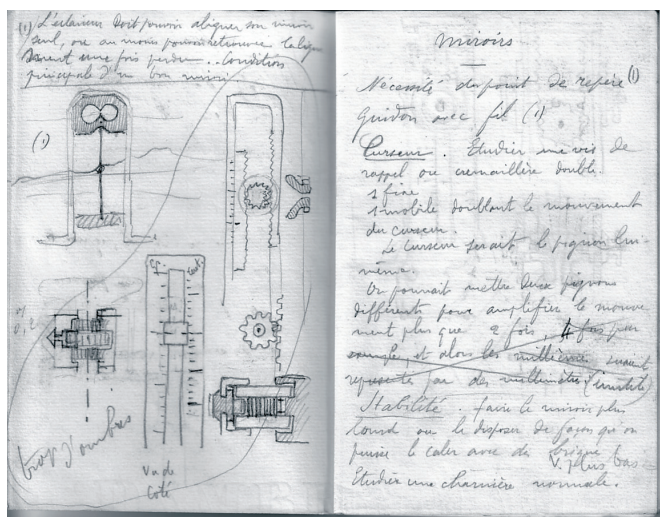 (1) L'éclaireur doit pouvoir aligner son miroir
seul, ou au moins pouvoir retrouver l'aligne
ment une fois perdu... Condition
principale d'un bon miroir
(1)
trop d'ombres
Vu de
côté
miroirs
Nécessité du point de repère (1)
guidon avec fil (1)
Curseur. Etudier une vis de
rappel ou crémaillère double.
1 fixe
1 mobile doublant le mouvement
du curseur.
Le curseur serait le pignon lui-
même.
On pourrait mettre deux pignons
différents pour amplifier le mouve
ment plus que 2 fois, 4 fois par
exemple et alors les millièmes seraient
représentés par des millimètres (inutile)
Stabilité. faire le miroir plus
lourd ou le disposer de façon qu'on
puisse le caler avec des
V. plus bas
Etudier une charnière normale.